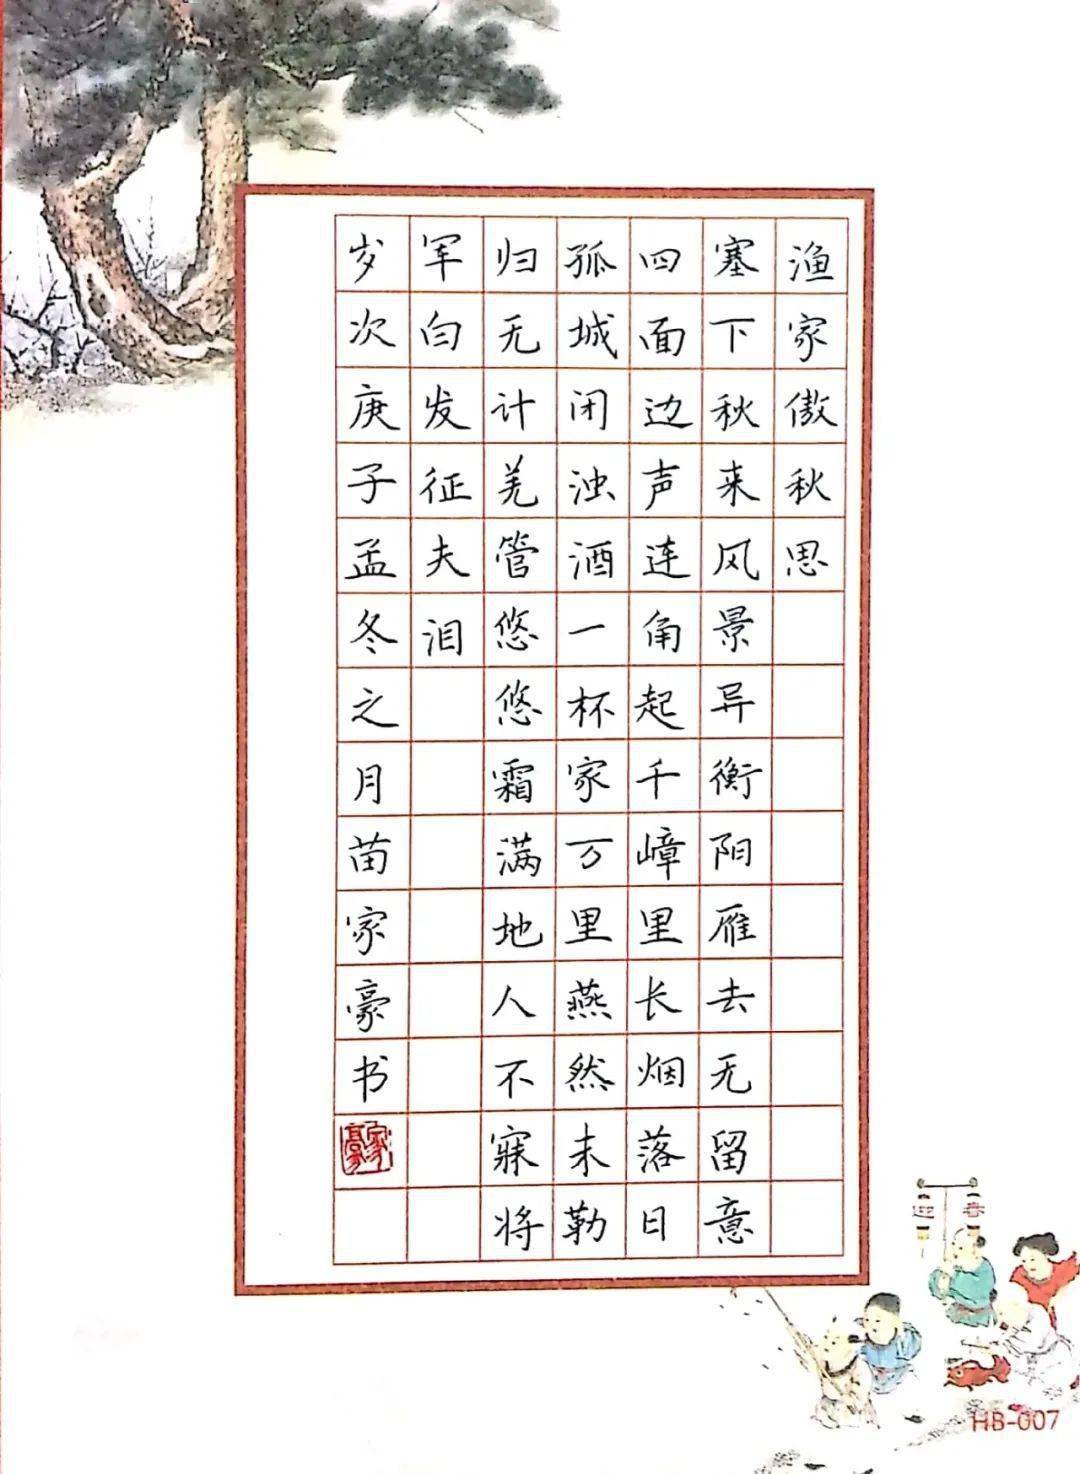 渔家傲秋思
塞下秋来风景异衡阳雁去无留意
四面边声连角起千嶂里长烟落日
孤城闭浊酒一杯家万里燕然未勒
归无计羌管悠悠霜满地人不寐将
军白发征夫泪
岁次庚子孟冬之月苗家豪书
家豪
迎春
HB-007